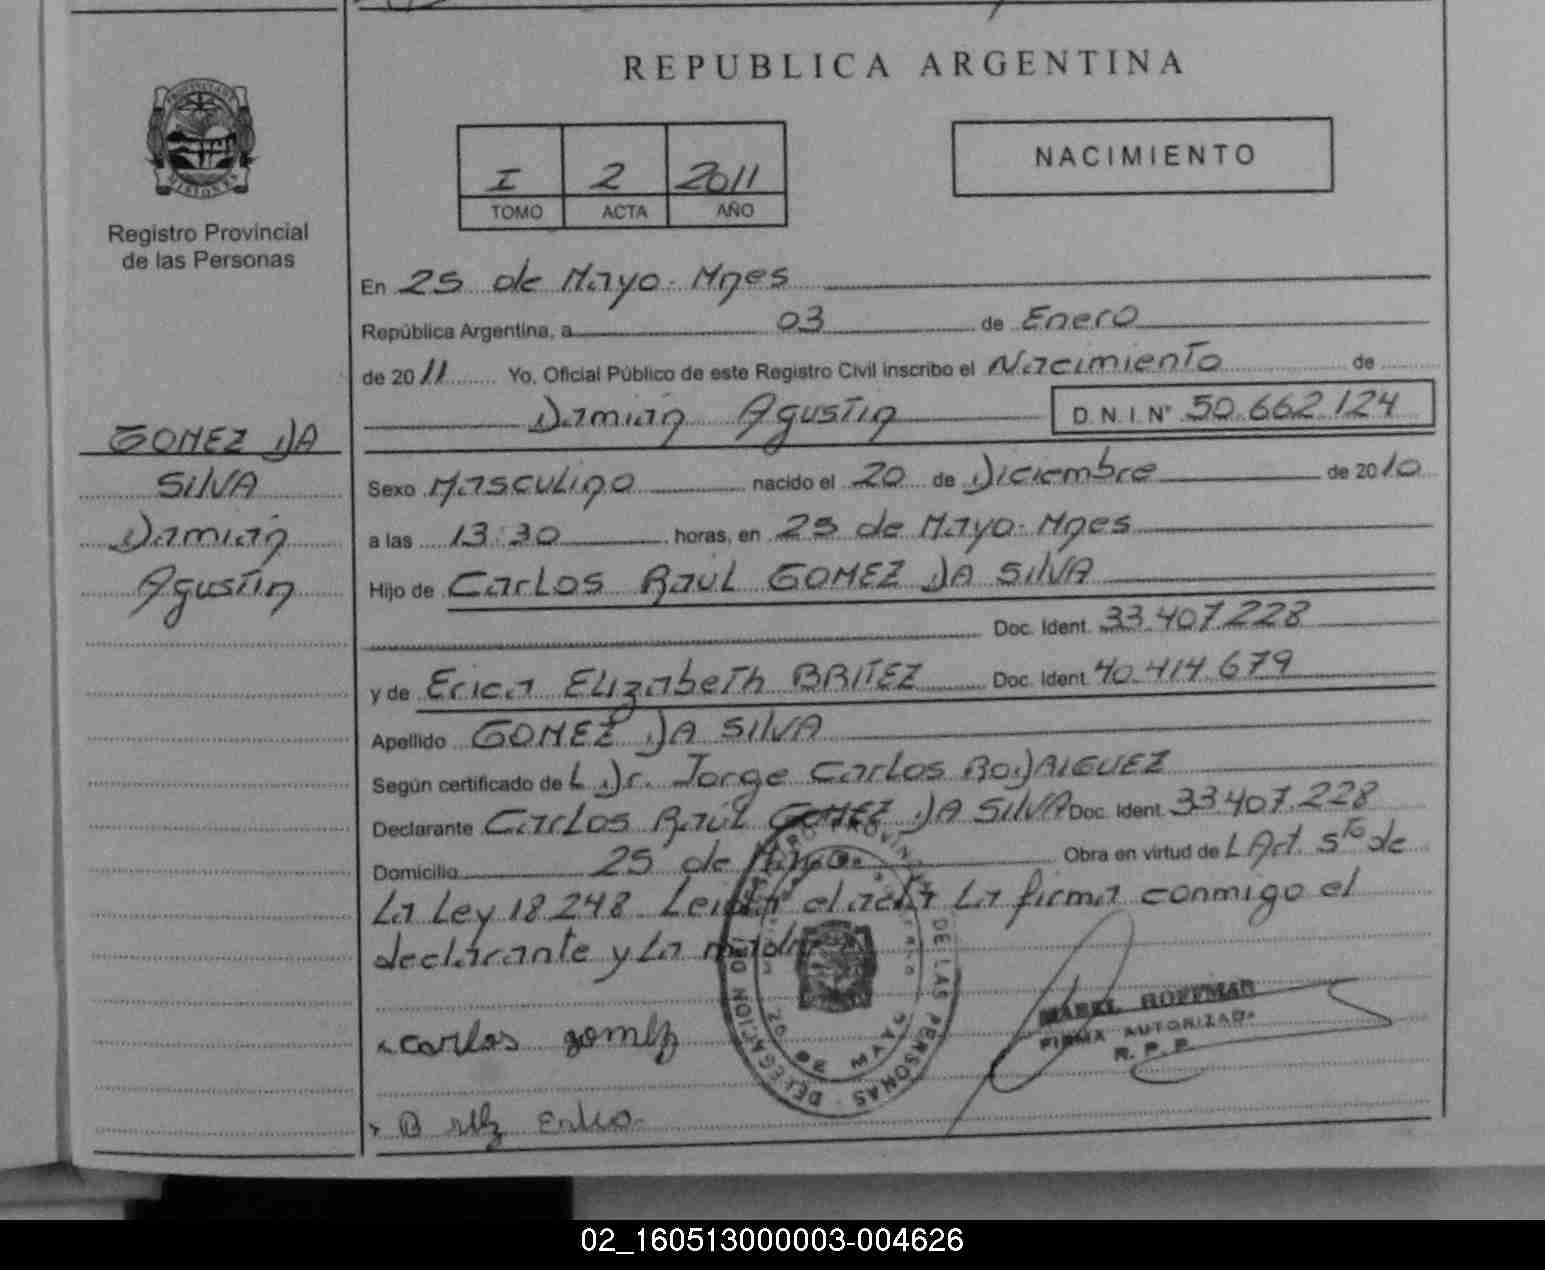 REPUBLICA ARGENTINA
MISIONES
Registro Provincial
de las Personas
I 2 2011
TOMO ACTA AÑO
NACIMIENTO
En 25 de Mayo-Mnes
República Argentina, a 03 de Enero
de 2011 Yo, Oficial Público de este Registro Civil inscribo el Nacimiento de
Damián Agustín D.N.I.Nº 50.662.124
GOMEZ DA
SILVA
Damián
Agustín
Sexo Masculino nacido el 20 de Diciembre de 2010
a las 13:30 horas, en 25 de Mayo-Mnes
Hijo de Carlos Raúl GOMEZ DA SILVA
Doc. Ident. 33.407.228
y de Erica Elizabeth BRITEZ Doc. Ident 40.414.679
Apellido GOMEZ DA SILVA
Según certificado de L Dr. Jorge Carlos RODRIGUEZ
Declarante Carlos Raúl GOMEZ DA SILVA Doc. Ident. 33.407.228
Domicilio 25 de Mayo Obra en virtud de L Art. 5to de
La Ley 18.248 Leida el acta La firma conmigo el
declarante y La madre
DELEGACION
DE LAS PERSONAS
25 DE MAYO
carlos gomez
MABEL HOFFMAN
FIRMA AUTORIZADA
R. P. P.
02_160513000003-004626